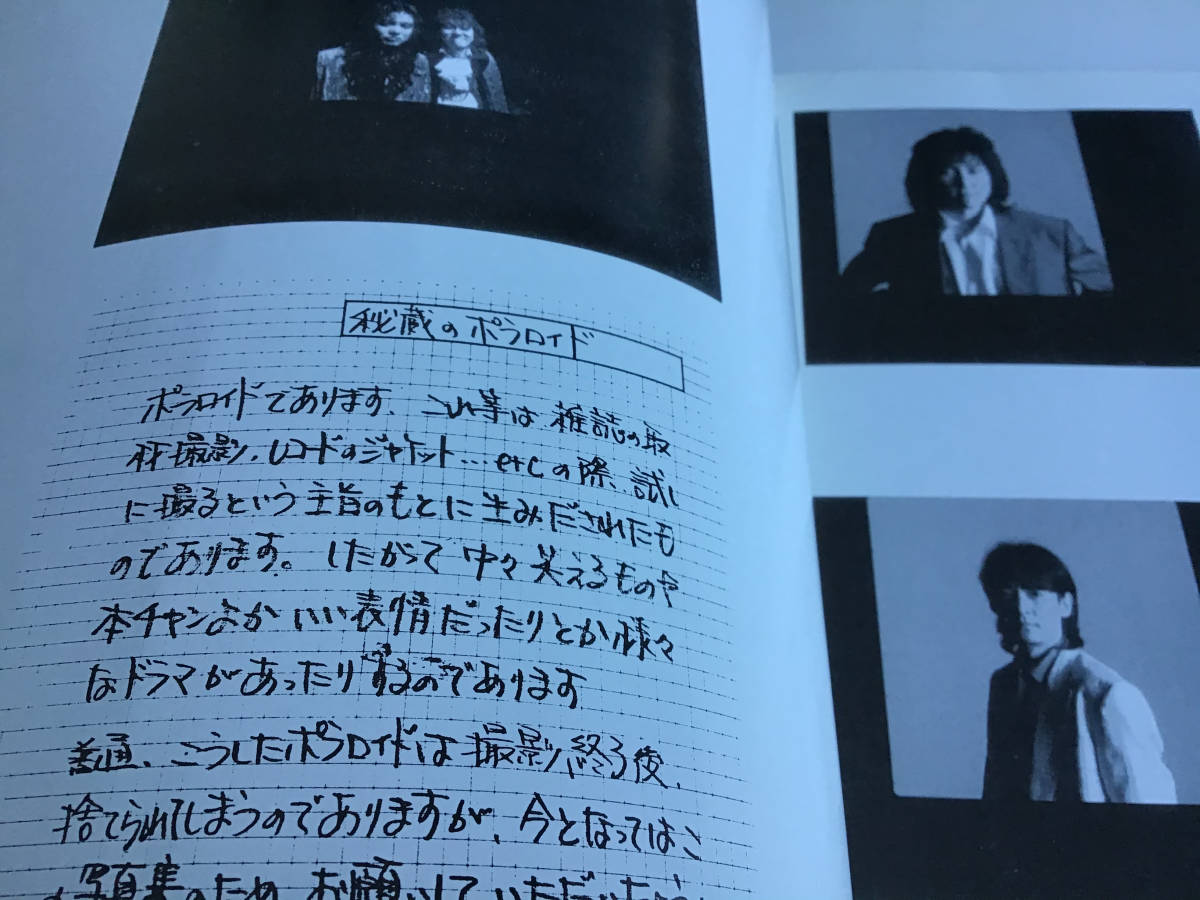 秘蔵のポラロイド
ポラロイドであります、これ等は雑誌の取
材撮影、レコードのジャケット…etcの際、試し
に撮るという主旨のもとに生みだされたも
のであります。したがって中々笑えるものや
本チャンよかいい表情だったりとか様々
なドラマがあったりするのであります
普通、こうしたポラロイドは撮影終了後、
捨てられてしまうのでありますが、今となってはこ
写真集のため、お願いしていただいた